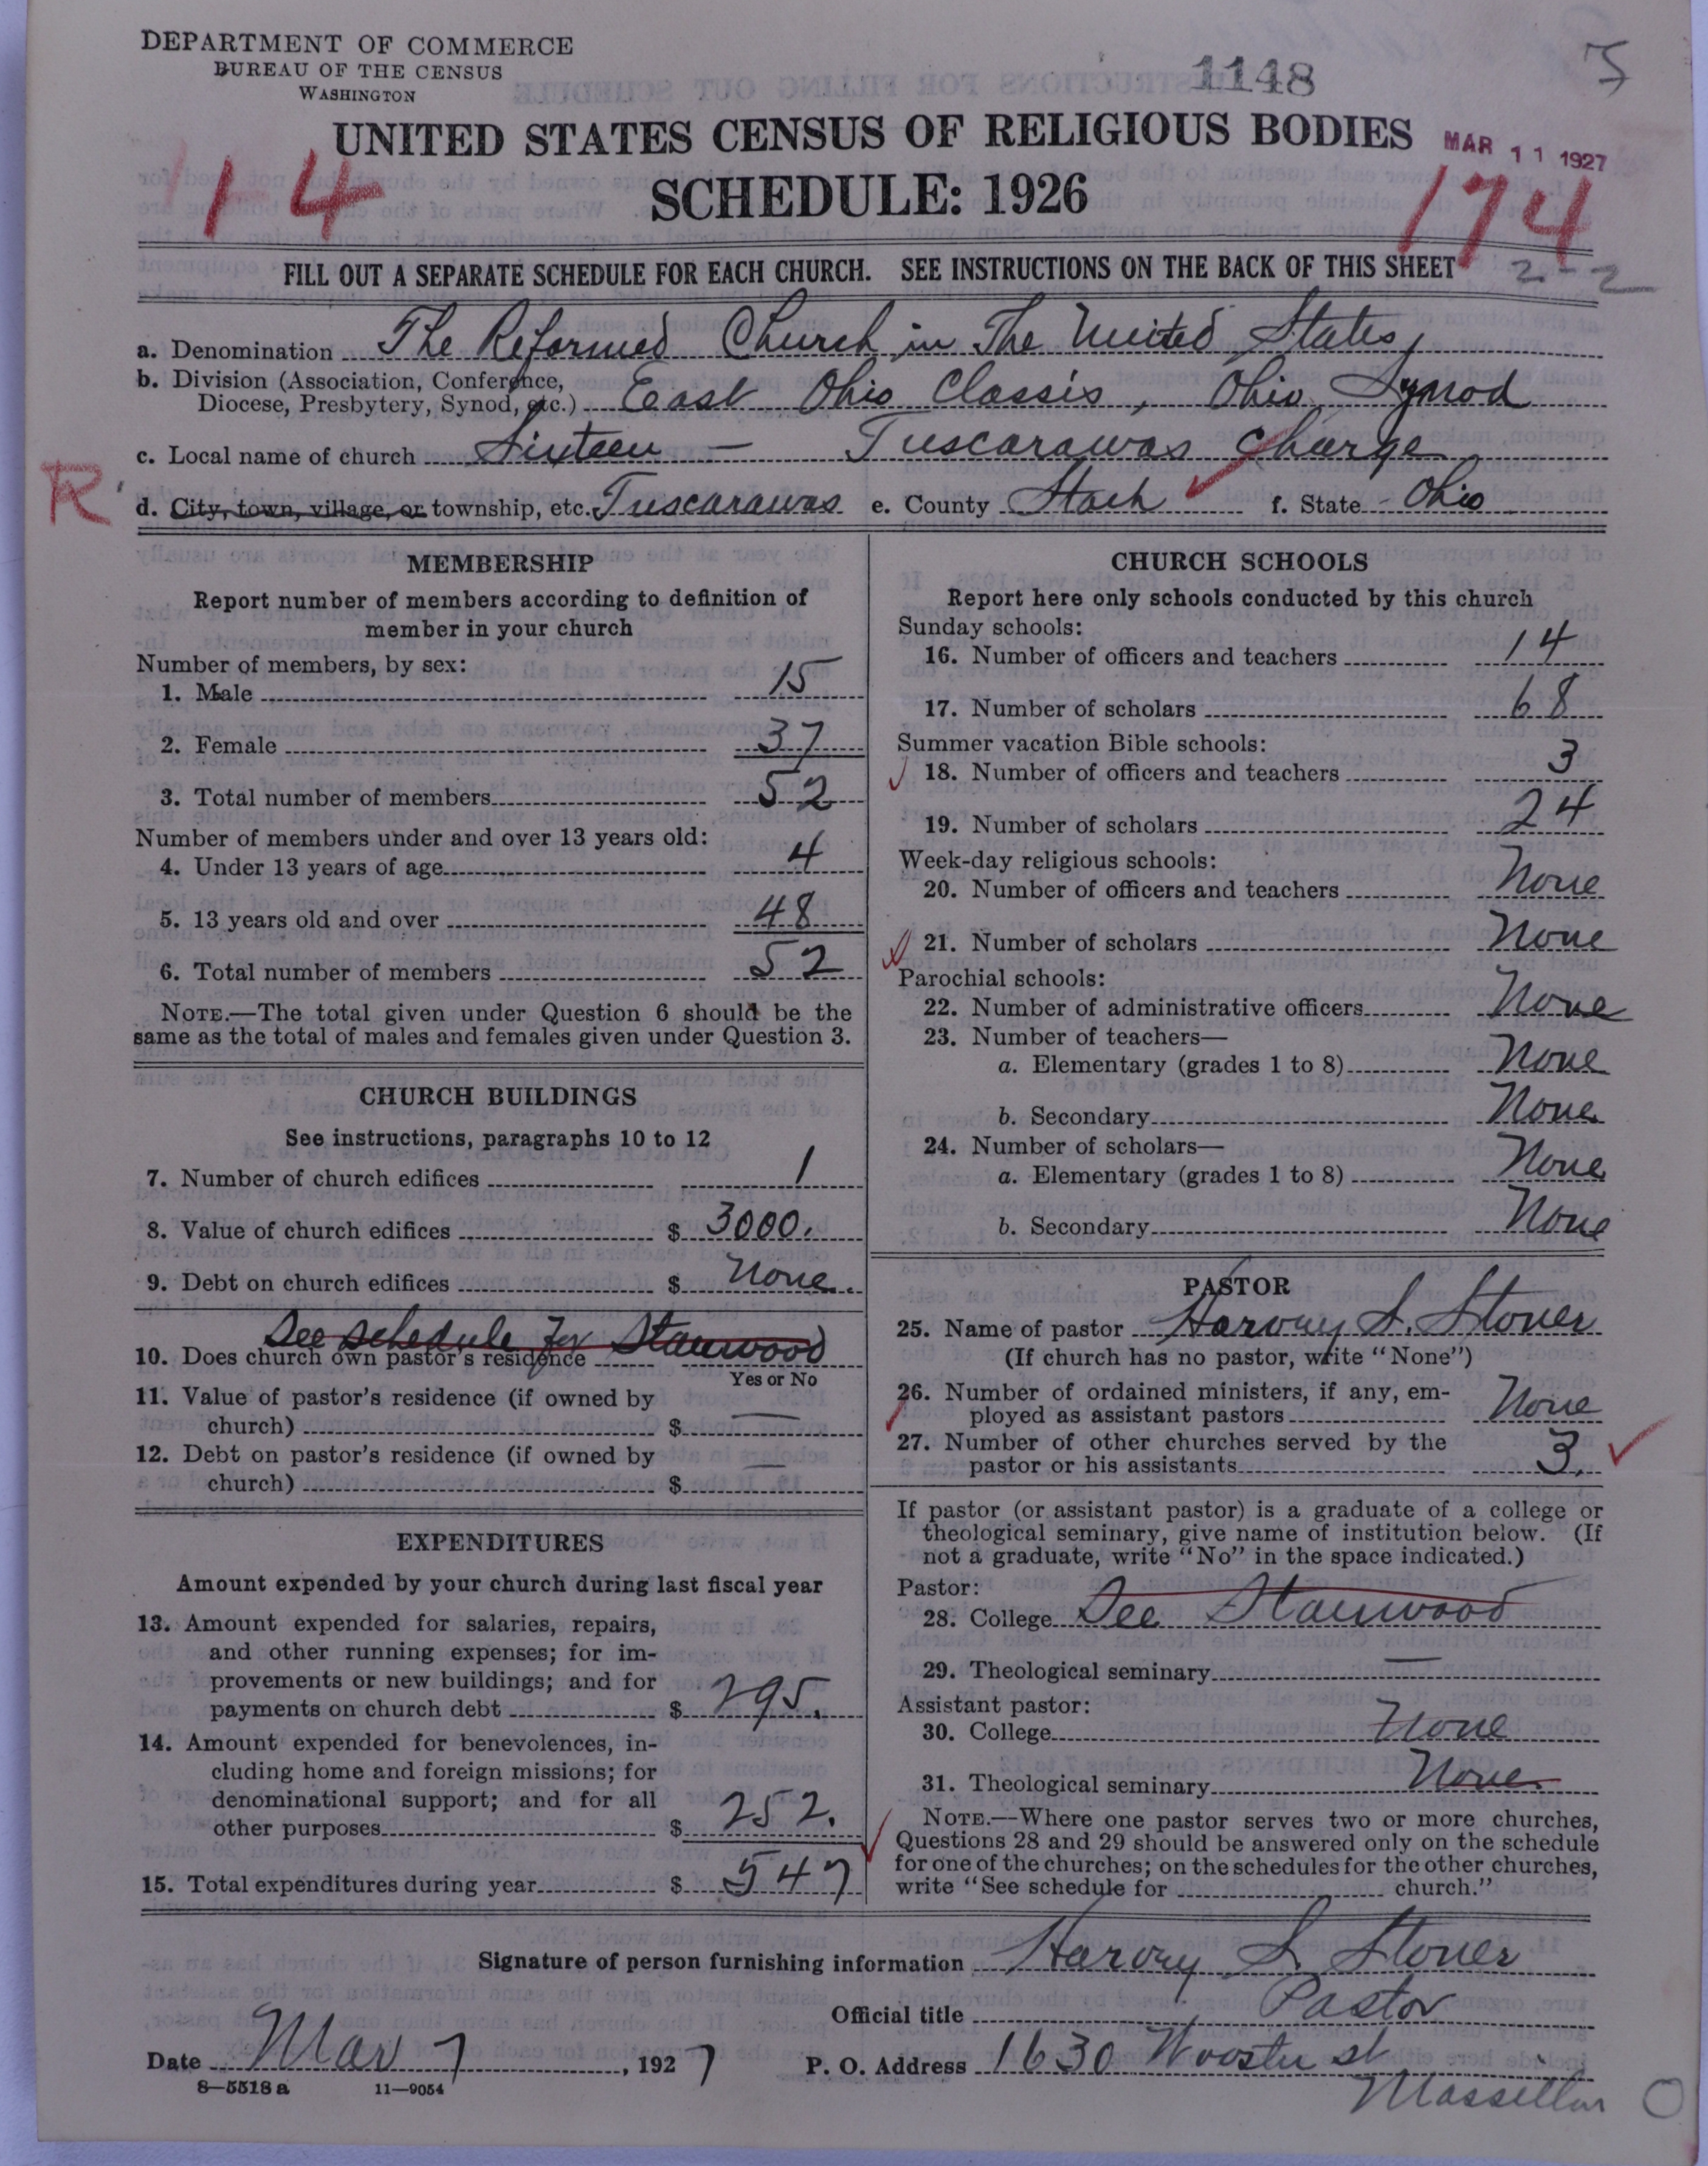 DEPARTMENT OF COMMERCE
BUREAU OF THE CENSUS
WASHINGTON
1148
5
UNITED STATES CENSUS OF RELIGIOUS BODIES
MAR 11 1927
14
SCHEDULE: 1926
174
FILL OUT A SEPARATE SCHEDULE FOR EACH CHURCH. SEE INSTRUCTIONS ON THE BACK OF THIS SHEET
2-2
a. Denomination The Reformed Church in The United States,
b. Division (Association, Conference, Diocese, Presbytery, Synod, etc.) East Ohio Classis, Ohio Synod
c. Local name of church Sixteen - Tuscarawas Charge
R
d. City, town, village, or township, etc. Tuscarawas e. County Stark f. State Ohio
MEMBERSHIP
Report number of members according to definition of
member in your church
Number of members, by sex:
1. Male 15
2. Female 37
3. Total number of members 52
Number of members under and over 13 years old:
4. Under 13 years of age 4
5. 13 years old and over 48
6. Total number of members 52
NOTE.—The total given under Question 6 should be the
same as the total of males and females given under Question 3.
CHURCH BUILDINGS
See instructions, paragraphs 10 to 12
7. Number of church edifices 1
8. Value of church edifices $ 3000.
9. Debt on church edifices $ None.
See schedule for Stanwood
10. Does church own pastor's residence
Yes or No
11. Value of pastor's residence (if owned by
church) $ —
12. Debt on pastor's residence (if owned by
church) $ —
EXPENDITURES
Amount expended by your church during last fiscal year
13. Amount expended for salaries, repairs,
and other running expenses; for im-
provements or new buildings; and for
payments on church debt $ 295.
14. Amount expended for benevolences, in-
cluding home and foreign missions; for
denominational support; and for all
other purposes $ 252.
15. Total expenditures during year $ 547
CHURCH SCHOOLS
Report here only schools conducted by this church
Sunday schools:
16. Number of officers and teachers 14
17. Number of scholars 68
Summer vacation Bible schools:
18. Number of officers and teachers 3
19. Number of scholars 24
Week-day religious schools:
20. Number of officers and teachers None
21. Number of scholars None
Parochial schools:
22. Number of administrative officers None
23. Number of teachers—
a. Elementary (grades 1 to 8) None
b. Secondary None
24. Number of scholars—
a. Elementary (grades 1 to 8) None
b. Secondary None
PASTOR
25. Name of pastor Harvey S. Stover
(If church has no pastor, write "None")
26. Number of ordained ministers, if any, em-
ployed as assistant pastors None
27. Number of other churches served by the
pastor or his assistants 3.
If pastor (or assistant pastor) is a graduate of a college or
theological seminary, give name of institution below. (If
not a graduate, write "No" in the space indicated.)
Pastor:
28. College See Stanwood
29. Theological seminary —
Assistant pastor:
30. College None
31. Theological seminary None
NOTE.—Where one pastor serves two or more churches,
Questions 28 and 29 should be answered only on the schedule
for one of the churches; on the schedules for the other churches,
write "See schedule for church."
Signature of person furnishing information Harvey S. Stover
Official title Pastor
Date Mar 7, 1927 P. O. Address 1630 Wooster st
8—5518 a 11—9054
Massillon